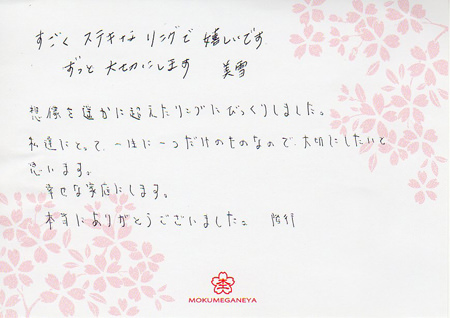 すごく ステキな リングで 嬉しいです
ずっと 大切にします 美雪
想像を遥かに超えたリングにびっくりしました。
私達にとって、一生に一つだけのものなので、大切にしたいと
思います。
幸せな家庭にします。
本当にありがとうございました。
MOKUMEGANEYA